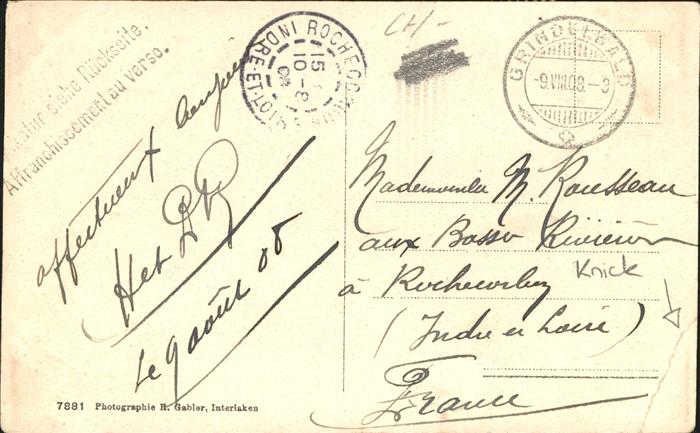 siehe Rückseite.
Affranchissement au verso.
INDRE-ET-LOIRE
15
10-8
08
CH-
GRINDELWALD
-9.VIII.08.-3
affectueux
Le 9 août 08
Mademoiselle M. Rousseau
aux Basses Rivières
Knick
à Rochecorbon
(Indre et Loire)
France
7881 Photographie R. Gabler, Interlaken